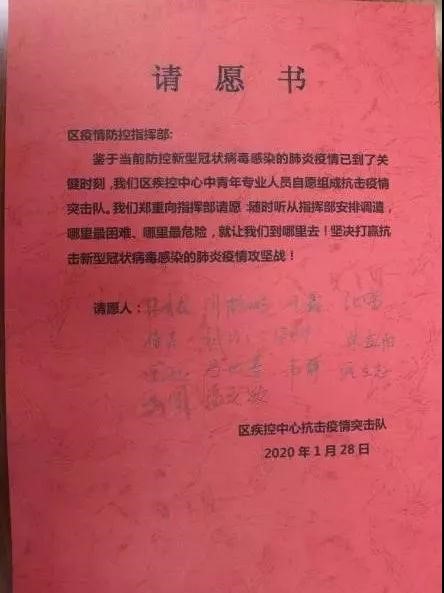 请愿书
区疫情防控指挥部:
鉴于当前防控新型冠状病毒感染的肺炎疫情已到了关
健时刻，我们区疾控中心中青年专业人员自愿组成抗击疫情
突击队。我们郑重向指挥部请愿：随时听从指挥部安排调遣，
哪里最困难、哪里最危险，就让我们到哪里去！坚决打赢抗
击新型冠状病毒感染的肺炎疫情攻坚战！
请愿人：
区疾控中心抗击疫情突击队
2020年1月28日